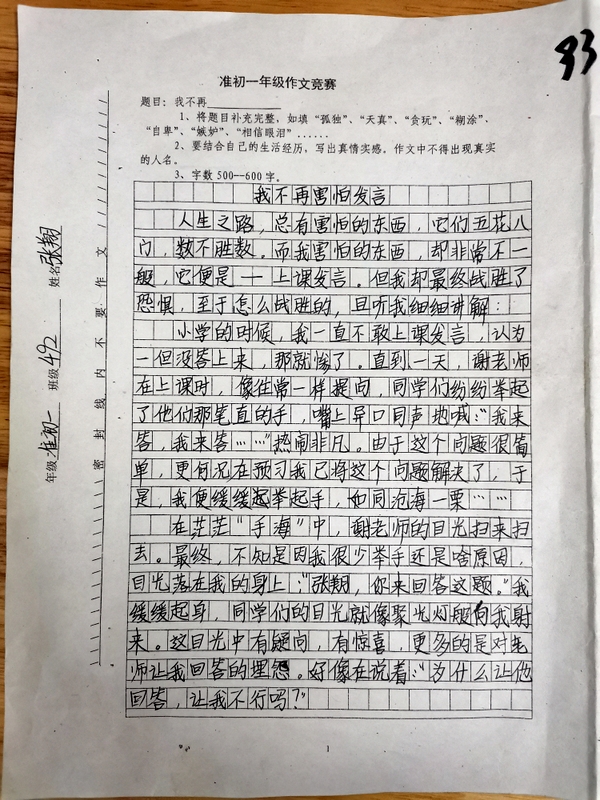 93
准初一年级作文竞赛
题目：我不再
1、将题目补充完整，如填“孤独”、“天真”、“贪玩”、“糊涂”、
“自卑”、“嫉妒”、“相信眼泪”……
2、要结合自己的生活经历，写出真情实感。作文中不得出现真实
的人名。
3、字数500--600字。
我不再害怕发言
人生之路，总有害怕的东西，它们五花八
门，数不胜数。而我害怕的东西，却非常不一
般，它便是——上课发言。但我却最终战胜了
恐惧，至于怎么战胜的，且听我细细讲解：
小学的时候，我一直不敢上课发言，认为
一但没答上来，那就惨了。直到一天，谢老师
在上课时，像往常一样提问，同学们纷纷举起
了他们那笔直的手，嘴上异口同声地喊：“我来
答，我来答……”热闹非凡。由于这个问题很简
单，更何况在预习我已将这个问题解决了，于
是，我便缓缓起举起手，如同沧海一栗……
在茫茫“手海”中，谢老师的目光扫来扫
去。最终，不知是因我很少举手还是啥原因，
目光落在我的身上：“张翔，你来回答这题。”我
缓缓起身，同学们的目光就像聚光灯般向我射
来。这目光中有疑问，有惊喜，更多的是对老
师让我回答的埋怨。好像在说着：“为什么让他
回答，让我不行吗？”
1
年级 准初一 班级 492 姓名 张翔
密 封 线 内 不 要 作 文